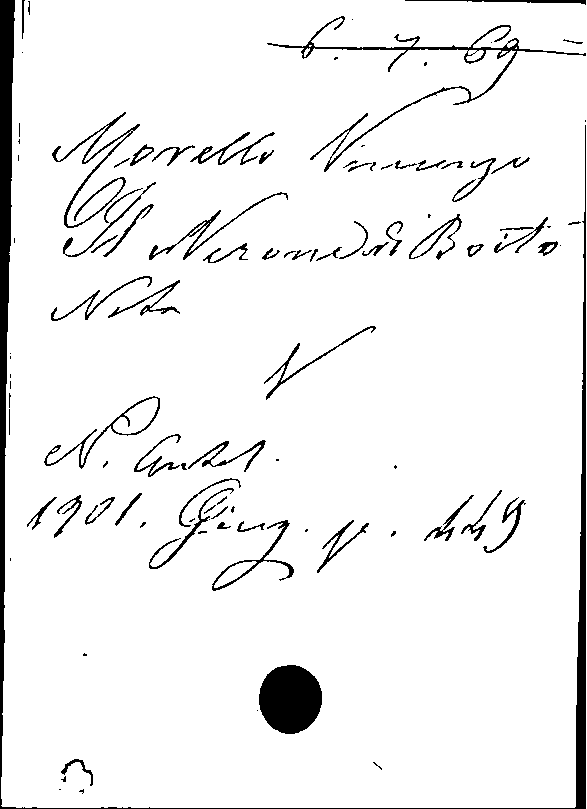 6. 7. 69
Morello Vincenzo
Il Nerone di Boito
Nota
V
N. Antol.
1901. Giug. p. 449